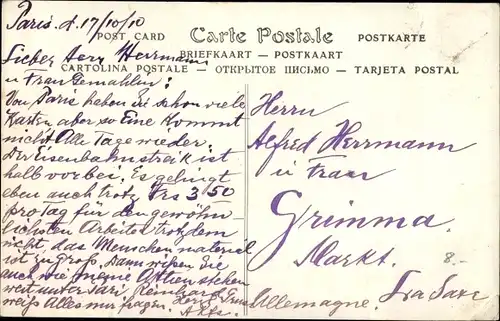 Paris d. 17/10/10
POST CARD
Carte Postale
POSTKARTE
BRIEFKAART — POSTKAART
CARTOLINA POSTALE — ОТКРЫТОЕ ПИСЬМО — TARJETA POSTAL
Lieber Herr Herrmann
u Frau Gemahlin!
Von Paris haben Sie schon viele
Karten aber so Eine kommt
nicht Alle Tage wieder.
Der Eisenbahnstreik ist
halb vorbei. Es gelingt
eben auch trotz Frs 3 50
pro Tag für den gewöhn-
lichsten Arbeiter trotzdem
nicht, das Menschen material
ist zu groß. Dann wissen Sie
auch wie meine Aktien stehen
weit unter Pari
weiß Alles mir sagen. Herzl.
Herrn
Alfred Herrmann
u Frau
Grimma.
Markt.
8.-
Allemagne.